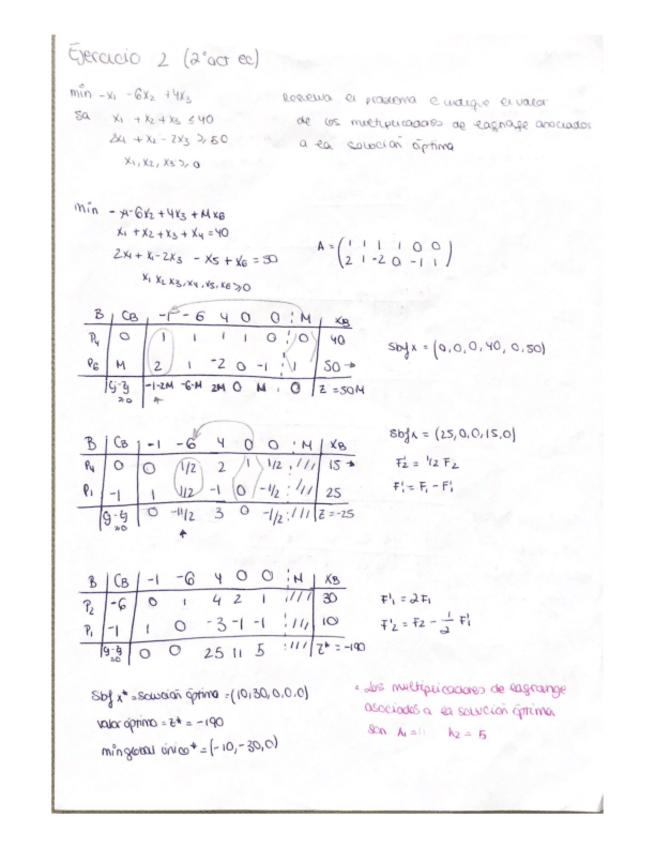 Ejercicio 2 (2º act ec)
min -x1 -6x2 +4x3
sa x1 + x2 + x3 ≤ 40
2x1 + x2 - 2x3 ≥ 50
x1, x2, x3 ≥ 0
Resuelva el problema e indique el valor
de los multiplicadores de lagrange asociados
a la solución óptima
min - x1-6x2 + 4x3 + Mx6
x1 + x2 + x3 + x4 = 40
2x1 + x2 - 2x3 - x5 + x6 = 50
x1 x2 x3, x4, x5, x6 ≥ 0
A = ( 1 1 1 1 0 0
2 1 -2 0 -1 1 )
B CB -1 -6 4 0 0 M XB
P4 0 1 1 1 1 0 0 40
P6 M 2 1 -2 0 -1 1 50 →
cj-zj ≥0 -1-2M -6-M 2M 0 M 0 Z = 50M
Sbf x = (0,0,0,40,0,50)
B CB -1 -6 4 0 0 M XB
P4 0 0 1/2 2 1 1/2 /// 15 →
P1 -1 1 1/2 -1 0 -1/2 /// 25
cj-zj ≥0 0 -11/2 3 0 -1/2 /// Z = -25
Sbf x = (25,0,0,15,0)
F'2 = 1/2 F2
F'1 = F1 - F'1
B CB -1 -6 4 0 0 M XB
P2 -6 0 1 4 2 1 /// 30
P1 -1 1 0 -3 -1 -1 /// 10
cj-zj ≥0 0 0 25 11 5 /// Z* = -190
F'1 = 2F1
F'2 = F2 - 1/2 F'1
Sbf x* = solución óptima = (10,30,0,0,0)
valor óptimo = z* = -190
min global único* = (-10, -30,0)
• Los multiplicadores de lagrange
asociados a la solución óptima
son λ1 = 11 λ2 = 5